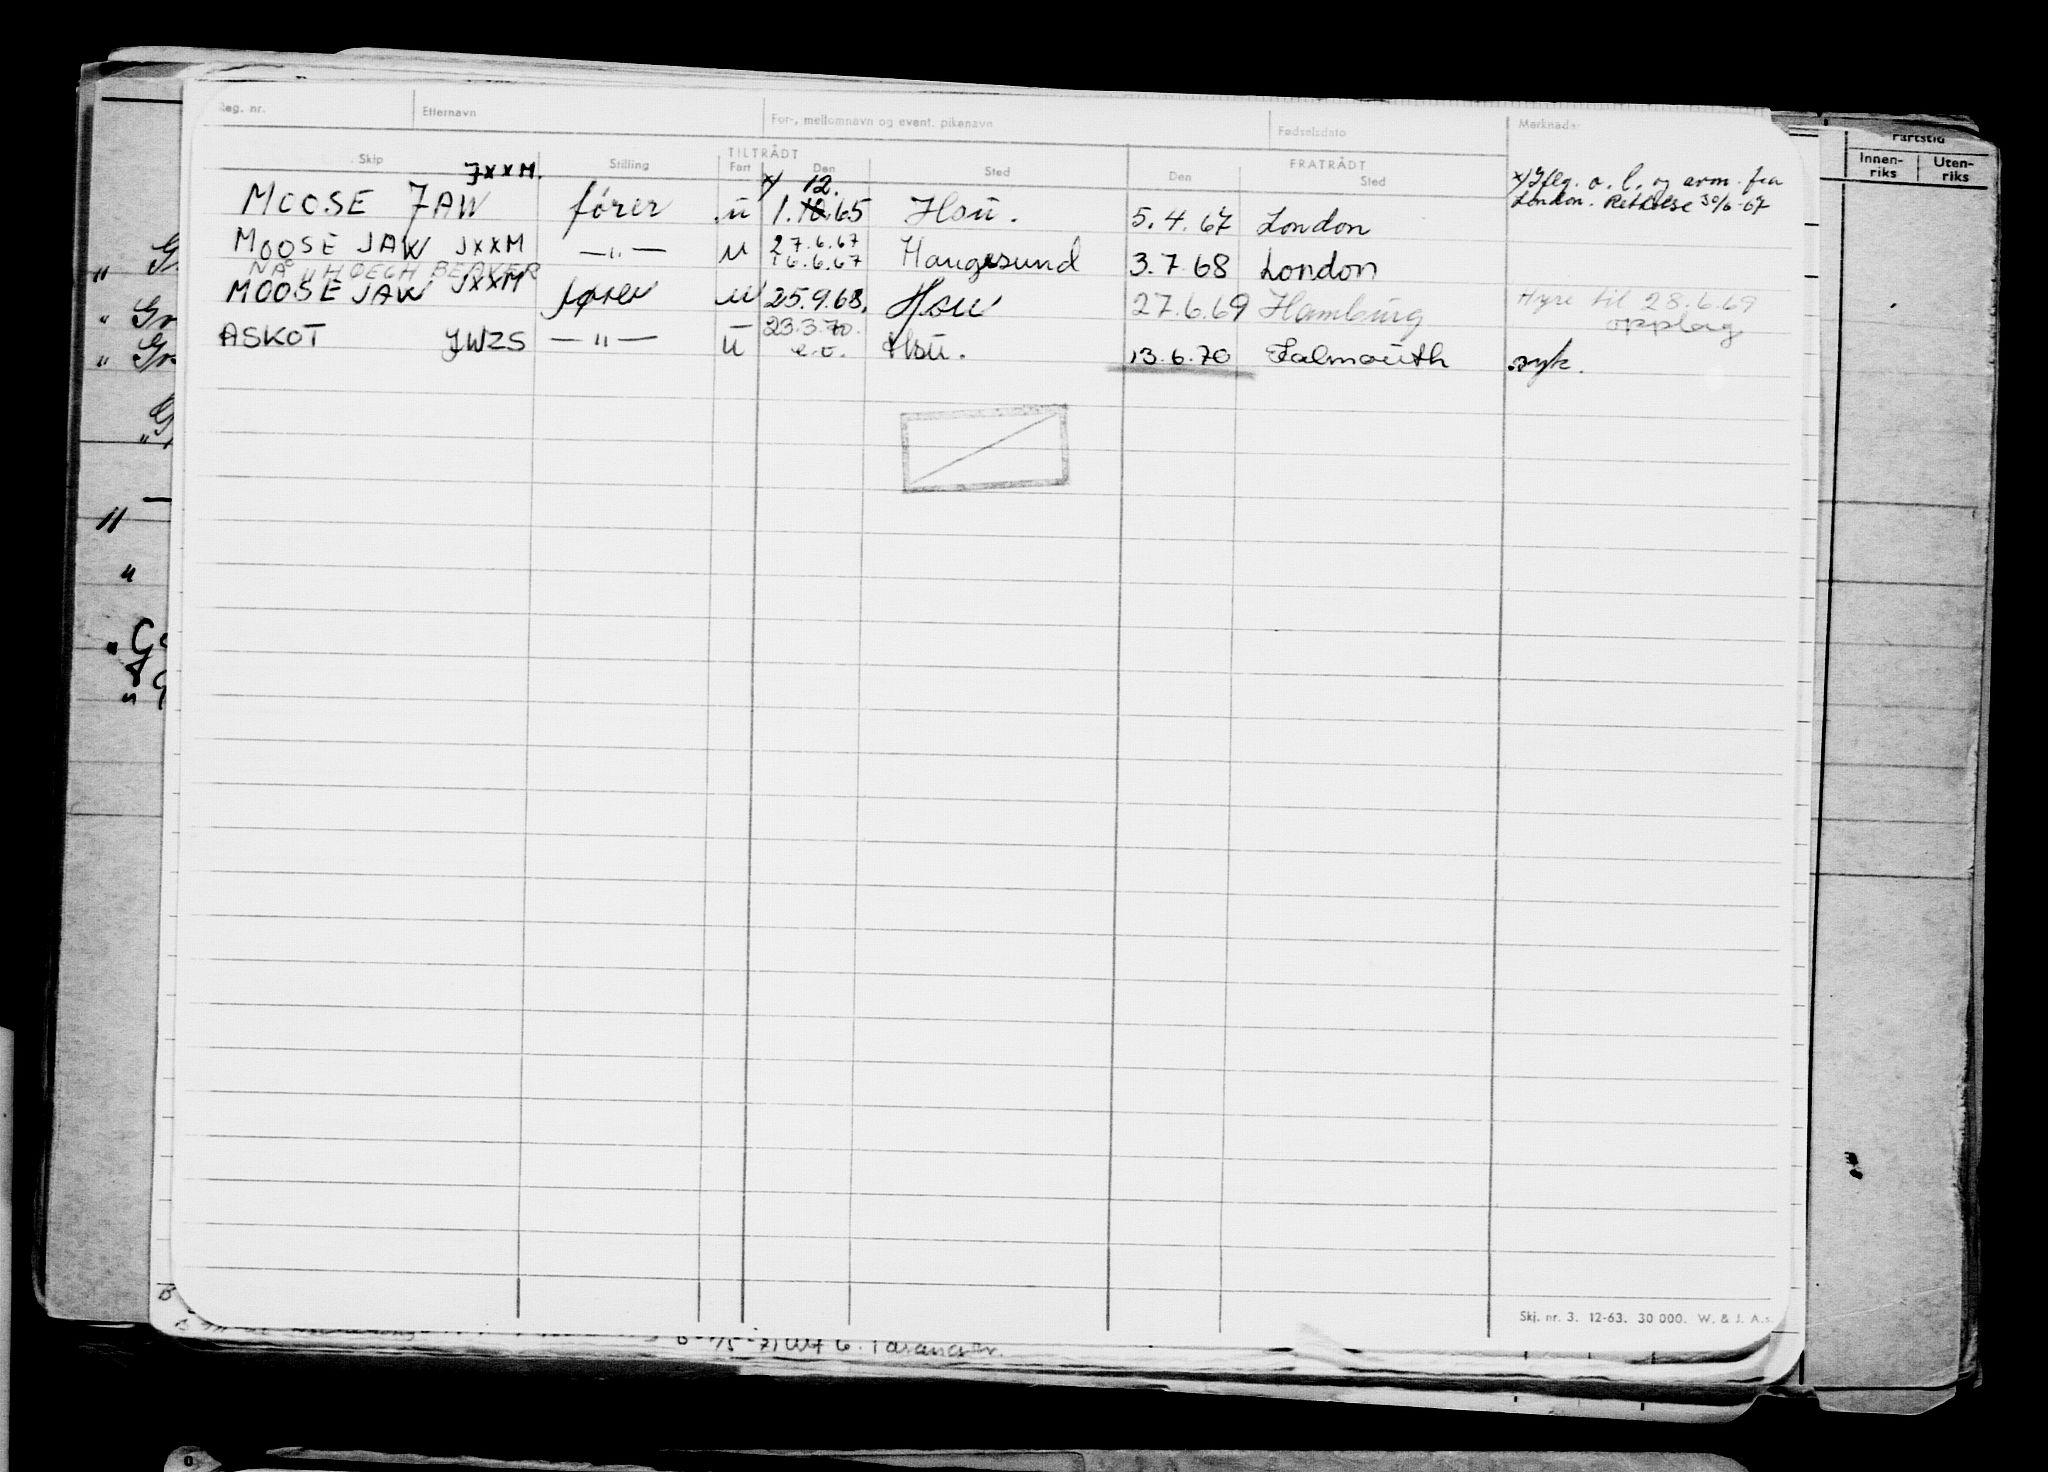 Reg. nr. Etternavn For-, mellomnavn og event. pikenavn Fødselsdato Merknader
Fartstid
Innen-riks Uten-riks
TILTRÅDT FRATRÅDT
Skip Stilling Fart Den Sted Den Sted
JXXM.
x/ 12.
MOOSE JAW fører u 1.10.65 Hsu. 5.4.67 London
x/ Iflg. o. l. og anm. fra
London. Rettelse 30/6-67
MOOSE JAW JXXM —"— u 27.6.67 Haugesund 3.7.68 London
16.6.67
NÅ "HOEGH BEAVER
MOOSE JAW JXXM fører u 25.9.68. Hsu 27.6.69 Hamburg Hyre til 28.6.69
opplag
ASKOT JWZS —"— u 23.3.70. Hsu. 13.6.70 Falmouth syk.
e.o.
Skj. nr. 3. 12-63. 30 000. W. & J. A.s.